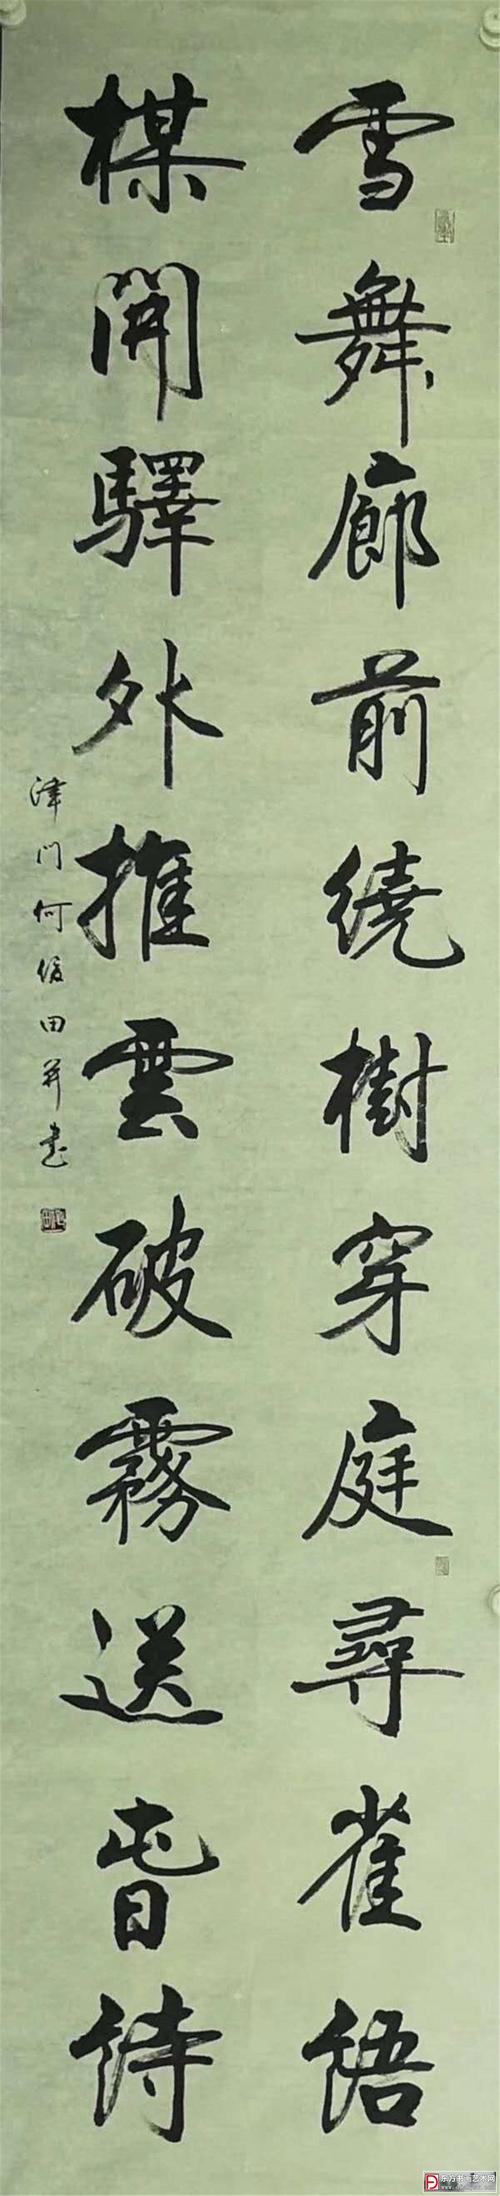 雪舞廊前繞樹穿庭尋雀語
楳開驛外推雲破霧送旾詩
津门何俊田并书
东方书画艺术网